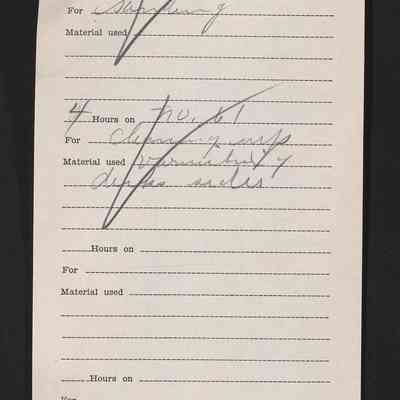 For
Material used
4 Hours on no. 61
For cleaning up
Material used
Hours on
For
Material used
Hours on
For